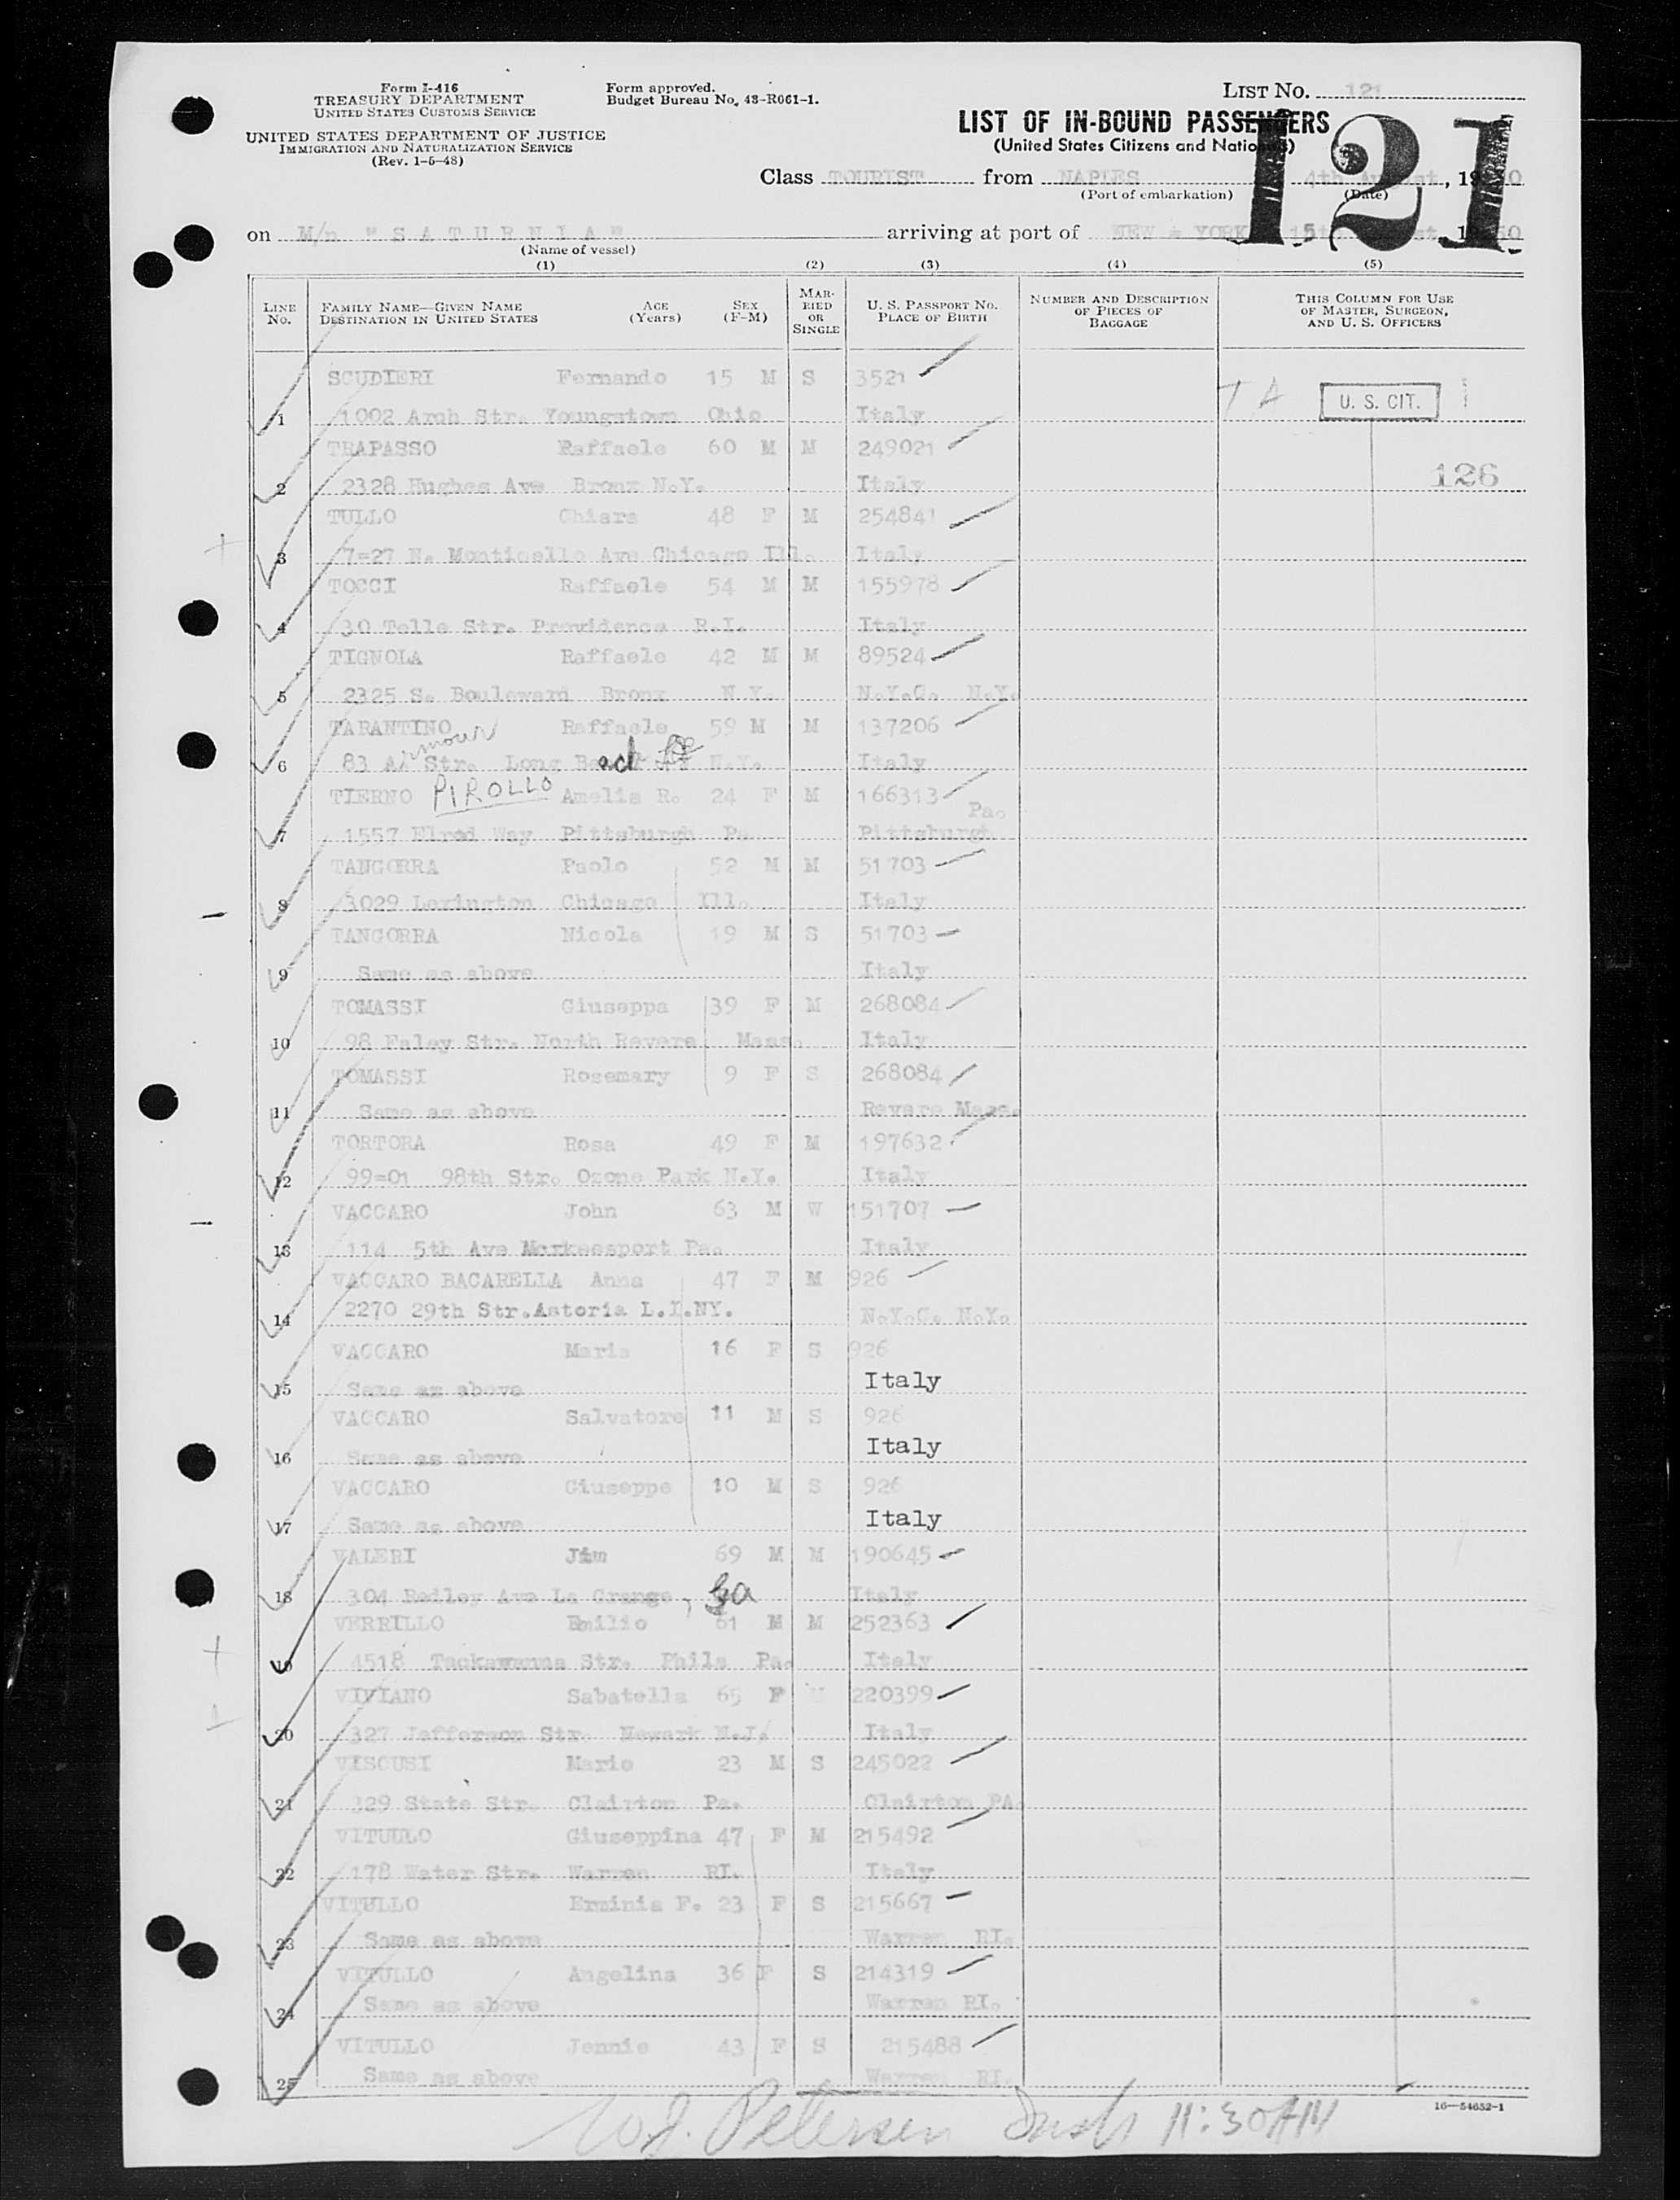 Form I-416
TREASURY DEPARTMENT
UNITED STATES CUSTOMS SERVICE
UNITED STATES DEPARTMENT OF JUSTICE
IMMIGRATION AND NATURALIZATION SERVICE
(Rev. 1-5-48)
Form approved.
Budget Bureau No. 43-R061-1.
LIST NO. 121
121
LIST OF IN-BOUND PASSENGERS
(United States Citizens and Nationals)
Class TOURIST from NAPLES 4th August, 1950
(Port of embarkation) (Date)
on M/n "SATURNIA" arriving at port of NEW = YORK 15th August, 1950
(Name of vessel)
(1) (2) (3) (4) (5)
LINE NO. FAMILY NAME—GIVEN NAME DESTINATION IN UNITED STATES AGE (Years) SEX (F-M) MARRIED OR SINGLE U. S. PASSPORT NO. PLACE OF BIRTH NUMBER AND DESCRIPTION OF PIECES OF BAGGAGE THIS COLUMN FOR USE OF MASTER, SURGEON, AND U. S. OFFICERS
SCUDIERI Fernando 15 M S 3521
TA U. S. CIT.
1 1002 Arch Str. Youngstown Ohio Italy
TRAPASSO Raffaele 60 M M 249021
126
2 2328 Hughes Ave Bronx N.Y. Italy
TULLO Chiara 48 F M 254841
3 7=27 N. Monticello Ave Chicago Ill. Italy
TOCCI Raffaele 54 M M 155978
4 30 Tello Str. Providence R.I. Italy
TIGNOLA Raffaele 42 M M 89524
5 2325 S. Bouleward Bronx N.Y. N.Y.C. N.Y.
TARANTINO Raffaele 59 M M 137206
6 83 Armour Str. Long Beach N.Y. Italy
TIERNO PIROLLO Amelia R. 24 F M 166313
7 1557 Elrod Way Pittsburgh Pa Pittsburgh Pa.
TANGORRA Paolo 52 M M 51703
8 3029 Lexington Chicago Ill. Italy
TANGORRA Nicola 19 M S 51703
9 Same as above Italy
TOMASSI Giuseppa 39 F M 268084
10 98 Faley Str. North Revere Mass. Italy
TOMASSI Rosemary 9 F S 268084
11 Same as above Revere Mass.
TORTORA Rosa 49 F M 197632
12 99=01 98th Str. Ozone Park N.Y. Italy
VACCARO John 63 M W 151707
13 114 5th Ave Mc.Keesport Pa. Italy
VACCARO BACARELLA Anna 47 F M 926
14 2270 29th Str.Astoria L.I.NY. N.Y.C. N.Y.
VACCARO Maria 16 F S 926
15 Same as above Italy
VACCARO Salvatore 11 M S 926
16 Same as above Italy
VACCARO Giuseppe 10 M S 926
17 Same as above Italy
VALERI Jim 69 M M 190645
18 304 Bedley Ave La Grange, Ga Italy
VERRILLO Emilio 61 M M 252363
19 4518 Tackawanna Str. Phila Pa. Italy
VIVIANO Sabatella 65 F 220399
20 327 Jefferson Str. Newark N.J. Italy
VISCUSI Mario 23 M S 245022
21 329 State Str. Clairton Pa. Clairton PA.
VITULLO Giuseppina 47 F M 215492
22 178 Water Str. Warren RI. Italy
VITULLO Erminia F. 23 F S 215667
23 Same as above Warren RI.
VITULLO Angelina 36 F S 214319
24 Same as above Warren RI.
VITULLO Jennie 43 F S 215488
25 Same as above Warren RI.
16—54652-1
Petersen 11:30AM